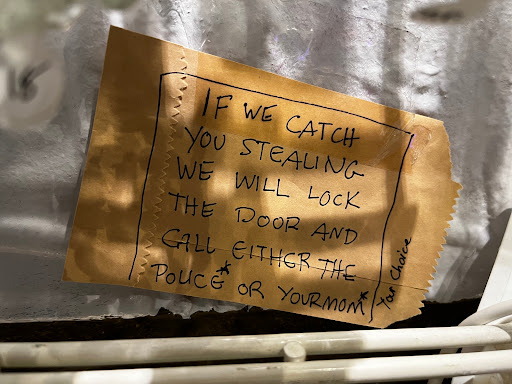 16
IF WE CATCH
YOU STEALING
WE WILL LOCK
THE DOOR AND
CALL EITHER THE
POLICE* OR YOUR MOM*
Your Choice